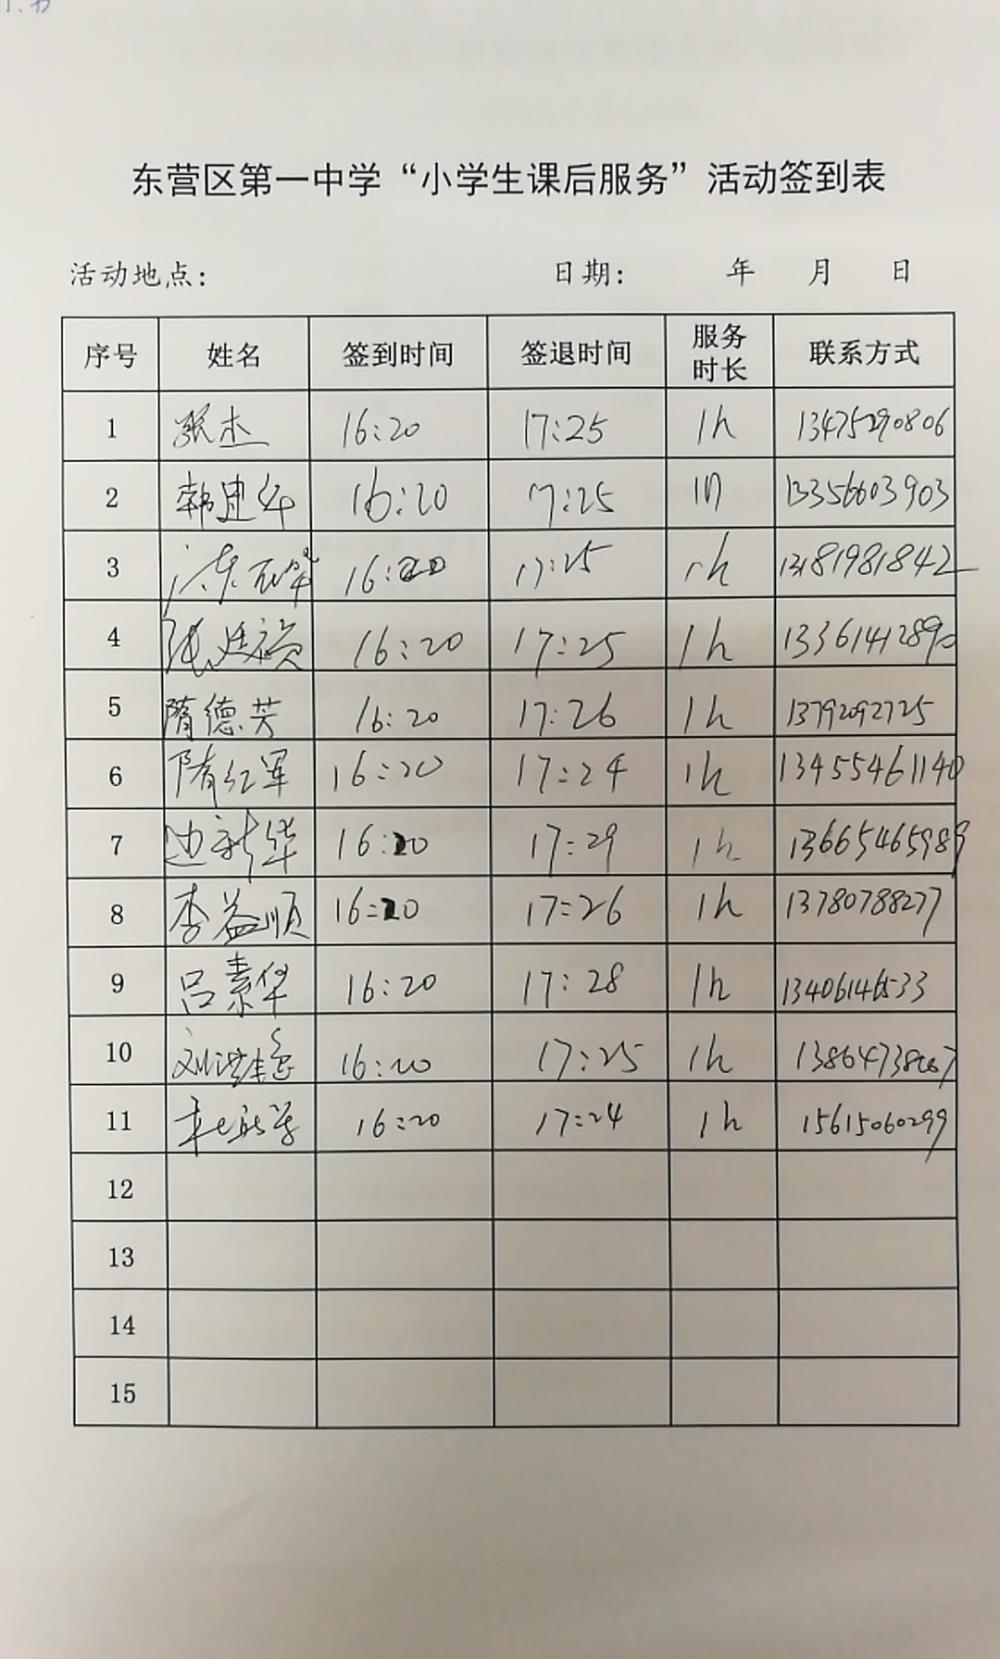 东营区第一中学“小学生课后服务”活动签到表
活动地点： 日期： 年 月 日
序号 姓名 签到时间 签退时间 服务时长 联系方式
1 张杰 16:20 17:25 1h 13475290806
2 韩建华 16:20 17:25 1h 13356603903
3 16:20 17:25 1h 13181981842
4 张廷 16:20 17:25 1h 13361412890
5 隋德芳 16:20 17:26 1h 13792092725
6 隋红军 16:20 17:24 1h 13455461140
7 边新华 16:20 17:29 1h 13665465989
8 李益顺 16:20 17:26 1h 13780788277
9 吕素华 16:20 17:28 1h 13406146533
10 16:20 17:25 1h
11 16:20 17:24 1h 15615060299
12
13
14
15